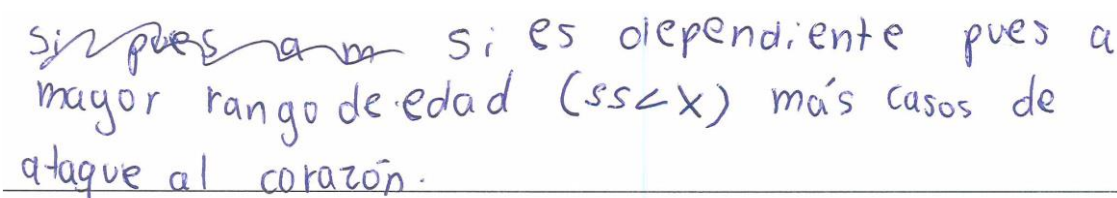 si pues a m si es dependiente pues a
mayor rango de edad (55<x) más casos de
ataque al corazón.